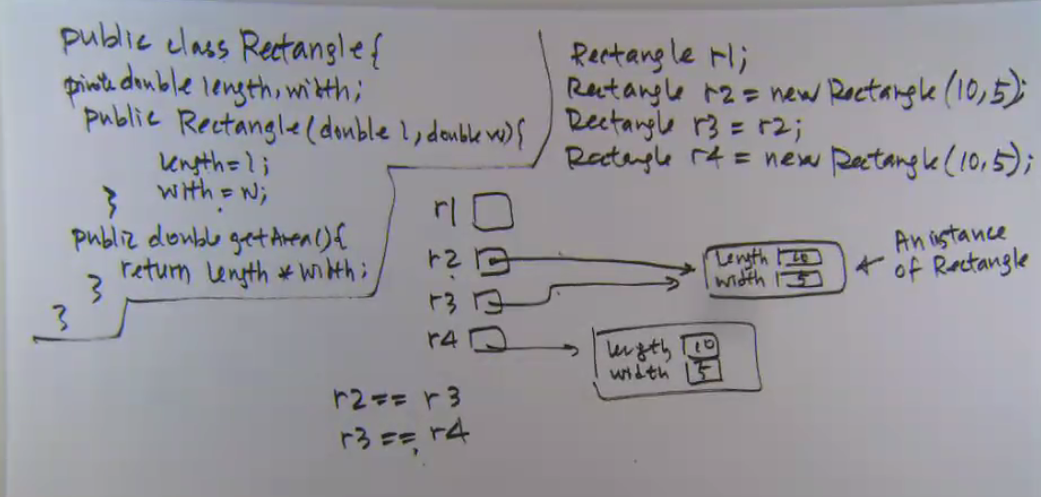 public class Rectangle{
private double length, width;
public Rectangle(double l, double w){
length = l;
with = w;
}
public double getArea(){
return length * width;
}
}
Rectangle r1;
Rectangle r2 = new Rectangle(10,5);
Rectangle r3 = r2;
Rectangle r4 = new Rectangle(10,5);
r1
r2
r3
r4
length 10
width 5
An istance
of Rectangle
length 10
width 5
r2 == r3
r3 == r4